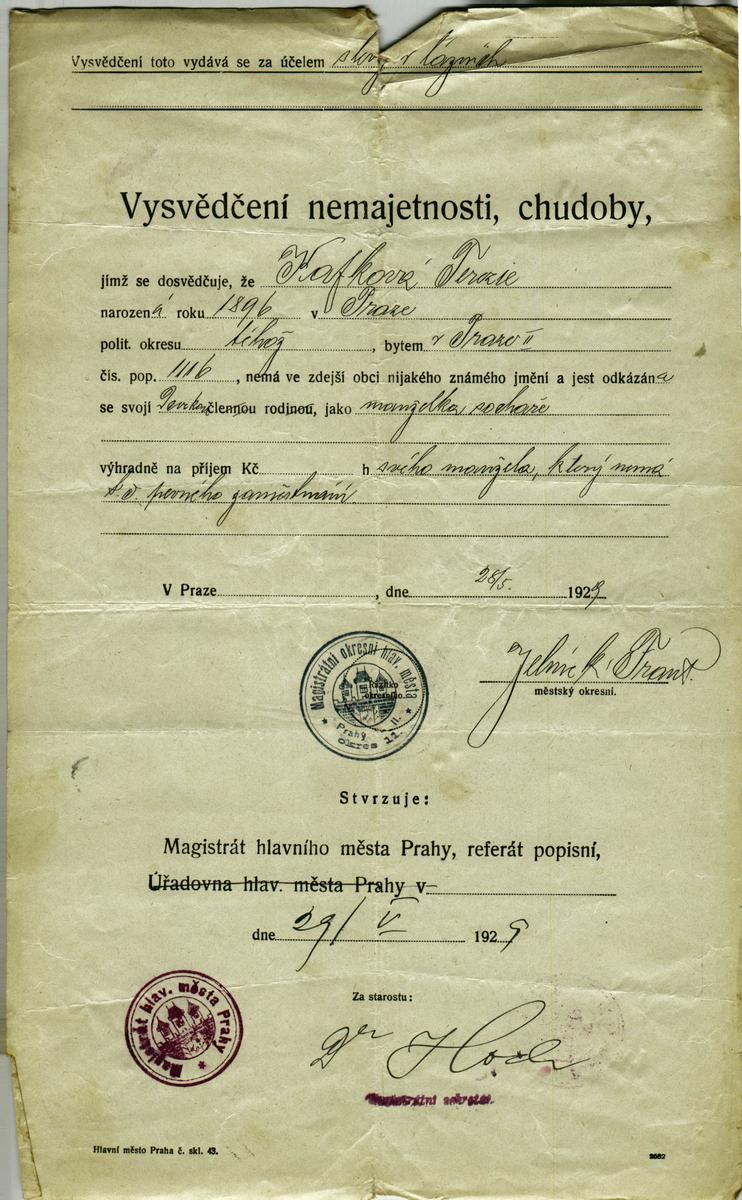 Vysvědčení toto vydává se za účelem slevy v lázních
Vysvědčení nemajetnosti, chudoby,
jímž se dosvědčuje, že Kafková Terezie
narozená roku 1896 v Praze
polit. okresu téhož, bytem v Praze II
čís. pop. 1116, nemá ve zdejší obci nijakého známého jmění a jest odkázána
se svojí člennou rodinou, jako manželka sochaře
výhradně na příjem Kč h svého manžela, který nemá
t. č. pevného zaměstnání
V Praze, dne 28/5. 1929
Magistrátní okresní hlav. města
Razítko
okresního.
Prahy
okres II.
Jelínek Frant.
městský okresní.
Stvrzuje:
Magistrát hlavního města Prahy, referát popisní,
Úřadovna hlav. města Prahy v
dne 29/V 1929
Magistrát hlav. města Prahy
Za starostu:
Dr Hoch
Hlavní město Praha č. skl. 43.